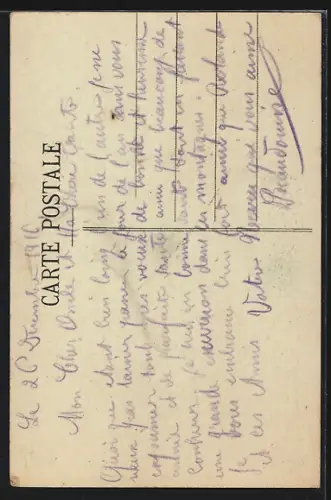 CARTE POSTALE
Le 26 Décembre 1916
Mon Cher Oncle et Ma Chère Tante.
Quoi que étant bien loin un de l'autre je ne
veux pas laisser passer le jour de l'an sans vous
exprimer tout mes vœux de bonne et heureuse
année et de parfaite santé ainsi que beaucoup de
bonheur. Je suis en bonne santé tout en faisant
une grande excursion dans les montagnes.
Je vous embrasse bien fort ainsi que Rolande
et ces Amis Votre Neveu qui vous aime